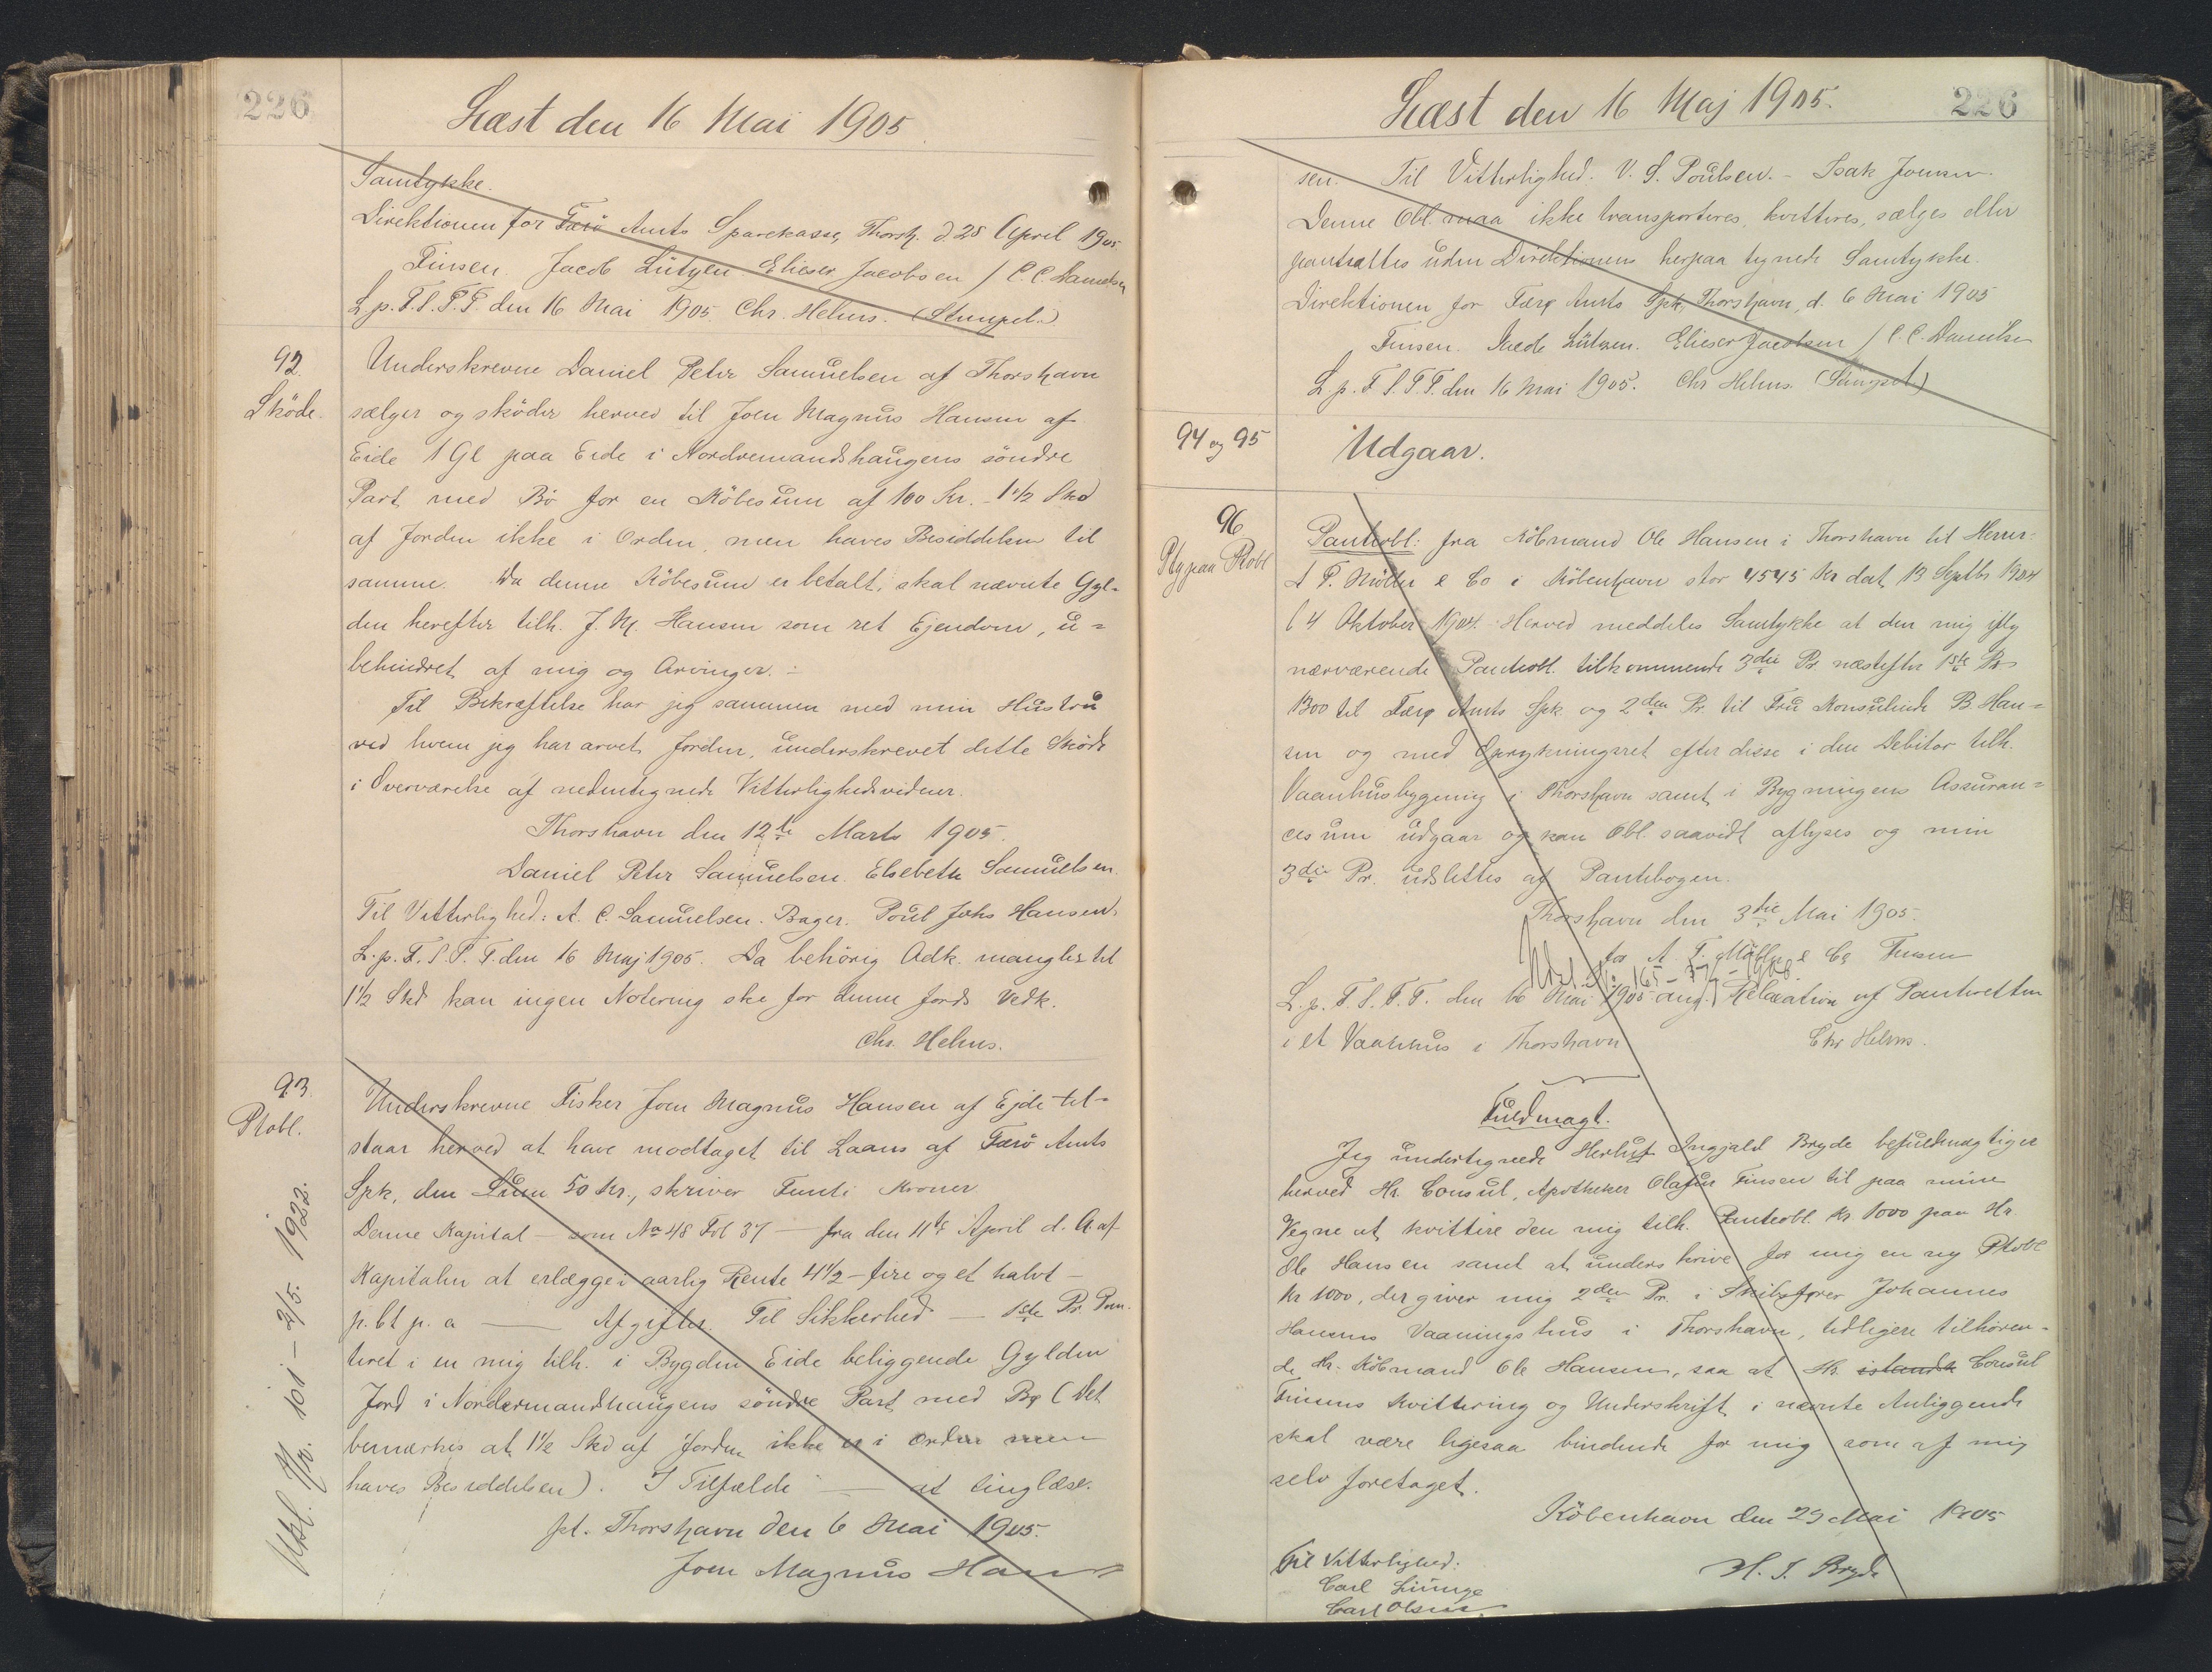 226
Læst den 16 Mai 1905
Samtykke.
Direktionen for Færö Amts Sparekasse, Thorsh. d. 28 April 1905.
Finsen. Jacob Lützen Elieser Jacobsen / C. C. Danielsen
L. p. F. S. P. T. den 16 Mai 1905. Chr. Helms. (Stempel.)
92.
Sköde.
Underskrevne Daniel Peter Samuelsen af Thorshavn
sælger og sköder herved til Joen Magnus Hansen af
Eide 1 Gl paa Eide i Nordremandshaugens söndre
Part med Bö for en Köbesum af 100 Kr. - 1 1/2 Skd
af Jorden ikke i Orden, men haves Besiddelsen til
samme. Da denne Köbesum er betalt, skal nævnte Gyl=
den herefter tilh. J. M. Hansen som ret Ejendom, u=
behindret af mig og Arvinger. -
Til Bekræftelse har jeg sammen med min Hustru
ved hvem jeg har arvet Jorden, underskrevet dette Sköde
i Overværelse af nedentegnede Vitterlighedsvidner.
Thorshavn den 12te Marts 1905.
Daniel Peter Samuelsen. Elsebeth Samuelsen.
Til Vitterlighed: A. C. Samuelsen. Bager. Poul Johs Hansen.
L. p. F. S. P. T. den 16 Maj 1905. Da behörig Adk. mangles til
1 1/2 Skd kan ingen Notering ske for denne Jords Vedk.
Chr. Helms.
93.
Ptobl.
Underskrevne Fisker Joen Magnus Hansen af Ejde til-
staar herved at have modtaget til Laans af Færö Amts
Spk, den Sum 50 Kr., skriver Femti Kroner
Denne Kapital - som No 48 Fol 37 - fra den 11te April d. A. af
Kapitalen at erlægge i aarlig Rente 4 1/2 - fire og et halvt -
p. Ct p. a — Afgifter. Til Sikkerhed — 1ste Pr. Pan-
teret i en mig tilh. i Bygden Eide beliggende Gylden
Jord i Nordermandshaugens söndre Part med Bø (Det
bemærkes at 1 1/2 Skd af Jorden ikke er i Orden men
haves Besiddelsen). I Tilfælde — at tinglæse.
pt. Thorshavn den 6 Mai 1905.
Joen Magnus Han
101 - 2/5. 1922.
Læst den 16 Maj 1905.
226
sen. Til Vitterlighed. V. S. Poulsen. - Isak Joensen.
Denne Obl. maa ikke transporteres, kvitteres, sælges eller
pantsættes uden Direktionens herpaa tegnede Samtykke.
Direktionen for Færø Amts Spk, Thorshavn, d. 6 Mai 1905
Finsen. Jacob Lützen. Elieser Jacobsen / C. C. Danielsen
L. p. F. S. P. T. den 16 Mai 1905. Chr Helms. (Stempel)
94 og 95
Udgaar.
96
Ptg paa Ptobl
Panteobl: fra Köbmand Ole Hansen i Thorshavn til Herrer
A P. Möller & Co i Köbenhavn stor 4545 Kr dat 13 Septbr 1904
l 4 Oktober 1904. Herved meddeles Samtykke at den mig iflg
nærværende Panteobl. tilkommende 3die Pr. næstefter 1ste Pr
1300 til Færø Amts Spk. og 2den Pr. til Fru Konsulinde B. Han=
sen og med Oprykningsret efter disse i den Debitor tilh.
Vaanhusbygning i Thorshavn samt i Bygningens Assuran=
cesum udgaar og kan Obl. saavidt aflyses og min
3die Pr. udslettes af Pantebogen.
Thorshavn den 3die Mai 1905.
for A. P. Möller & Co Finsen
L. p. F. S. P. T. den 16 Mai 1905 ang. Relaxation af Panteretten
i et Vaanhus i Thorshavn Chr Helms.
Fuldmagt.
Jeg undertegnede Herluf Ingjald Bryde befuldmægtiger
herved Hr. Consul, Apotheker Olafur Finsen til paa mine
Vegne at kvittere den mig tilh. Panteobl. Kr 1000 paa Hr.
Ole Hansen samt at underskrive for mig en ny Ptobl
Kr 1000, der giver mig 2den Pr. i Skibsfører Johannes
Hansens Vaaningshus i Thorshavn, tidligere tilhören-
de Hr. Köbmand Ole Hansen, saa at Hr. islandsk Consul
Finsens Kvittering og Underskrift i nævnte Anliggende
skal være ligesaa bindende for mig som af mig
selv foretaget.
Köbenhavn den 29 Mai 1905
Til Vitterlighed: H. I. Bryde
Carl Lunge
Carl Olsen.